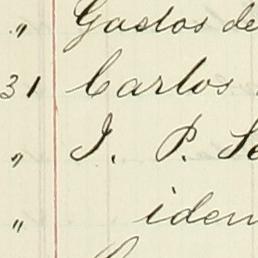 " Gastos de
31 Carlos
" J. P. Se
" iden